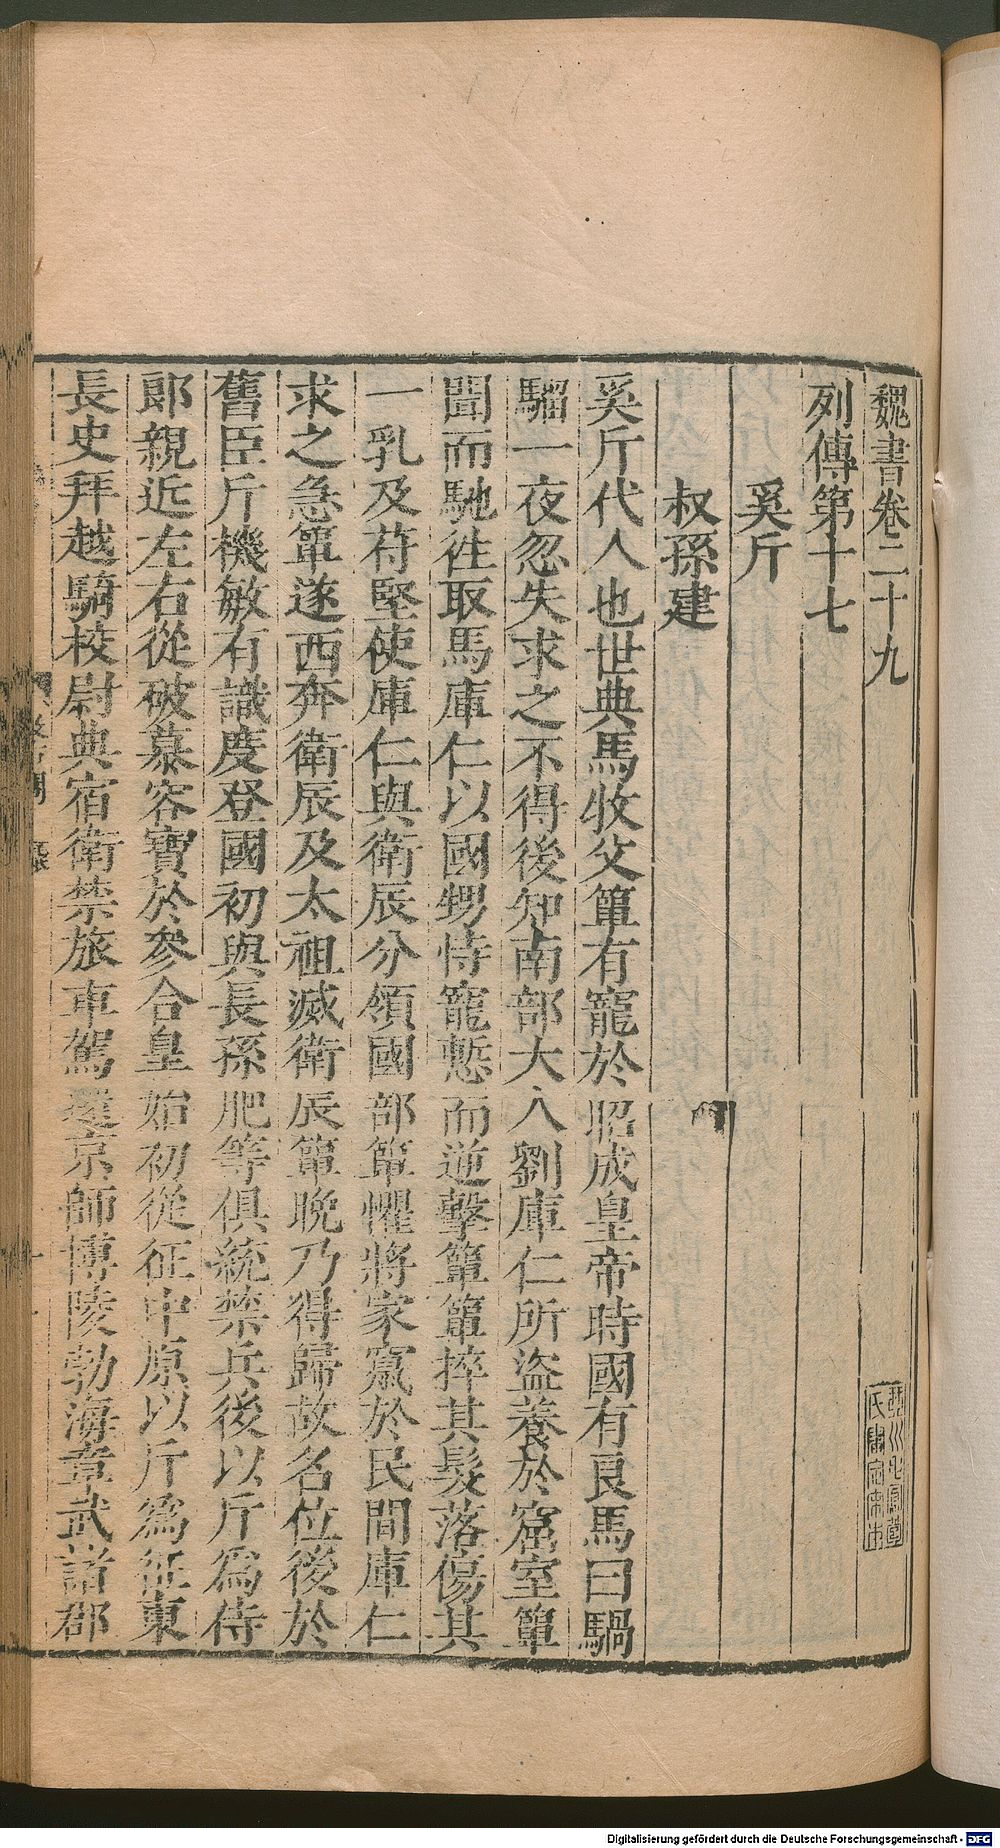 魏書卷二十九
列傳第十七
奚斤
叔孫建
奚斤代人也世典馬牧父簞有寵於昭成皇帝時國有良馬曰騧
騮一夜忽失求之不得後知南部大人劉庫仁所盜養於窟室簞
聞而馳往取馬庫仁以國甥恃寵慙而逆擊簞簞捽其髮落傷其
一乳及苻堅使庫仁與衛辰分領國部簞懼將家竄於民間庫仁
求之急簞遂西奔衛辰及太祖滅衛辰簞晚乃得歸故名位後於
舊臣斤機敏有識度登國初與長孫肥等俱統禁兵後以斤為侍
郎親近左右從破慕容寶於參合皇始初從征中原以斤為征東
長史拜越騎校尉典宿衛禁旅車駕還京師博陵勃海章武諸郡
Digitalisierung gefördert durch die Deutsche Forschungsgemeinschaft - DFG